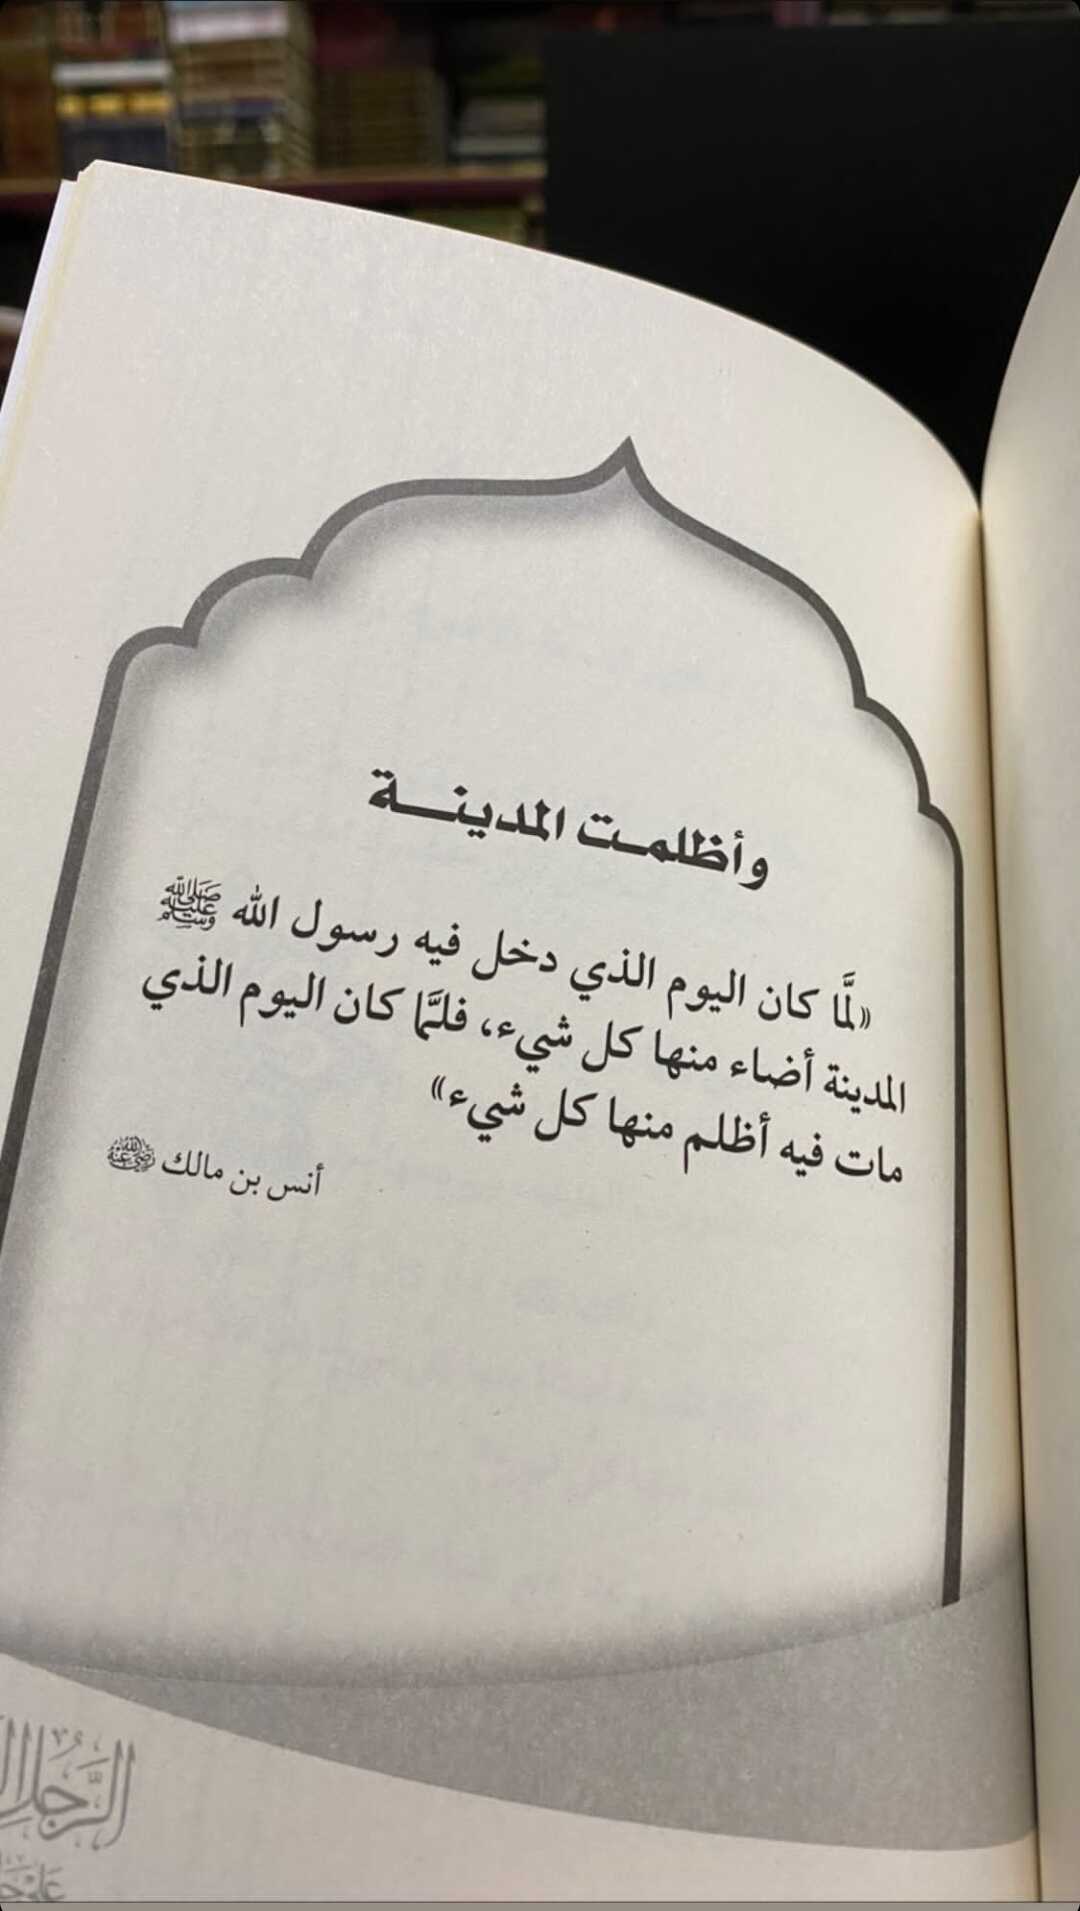 وأظلمت المدينة
«لمَّا كان اليوم الذي دخل فيه رسول الله ﷺ
المدينة أضاء منها كل شيء، فلمَّا كان اليوم الذي
مات فيه أظلم منها كل شيء»
أنس بن مالك رضي الله عنه
الرَّجل